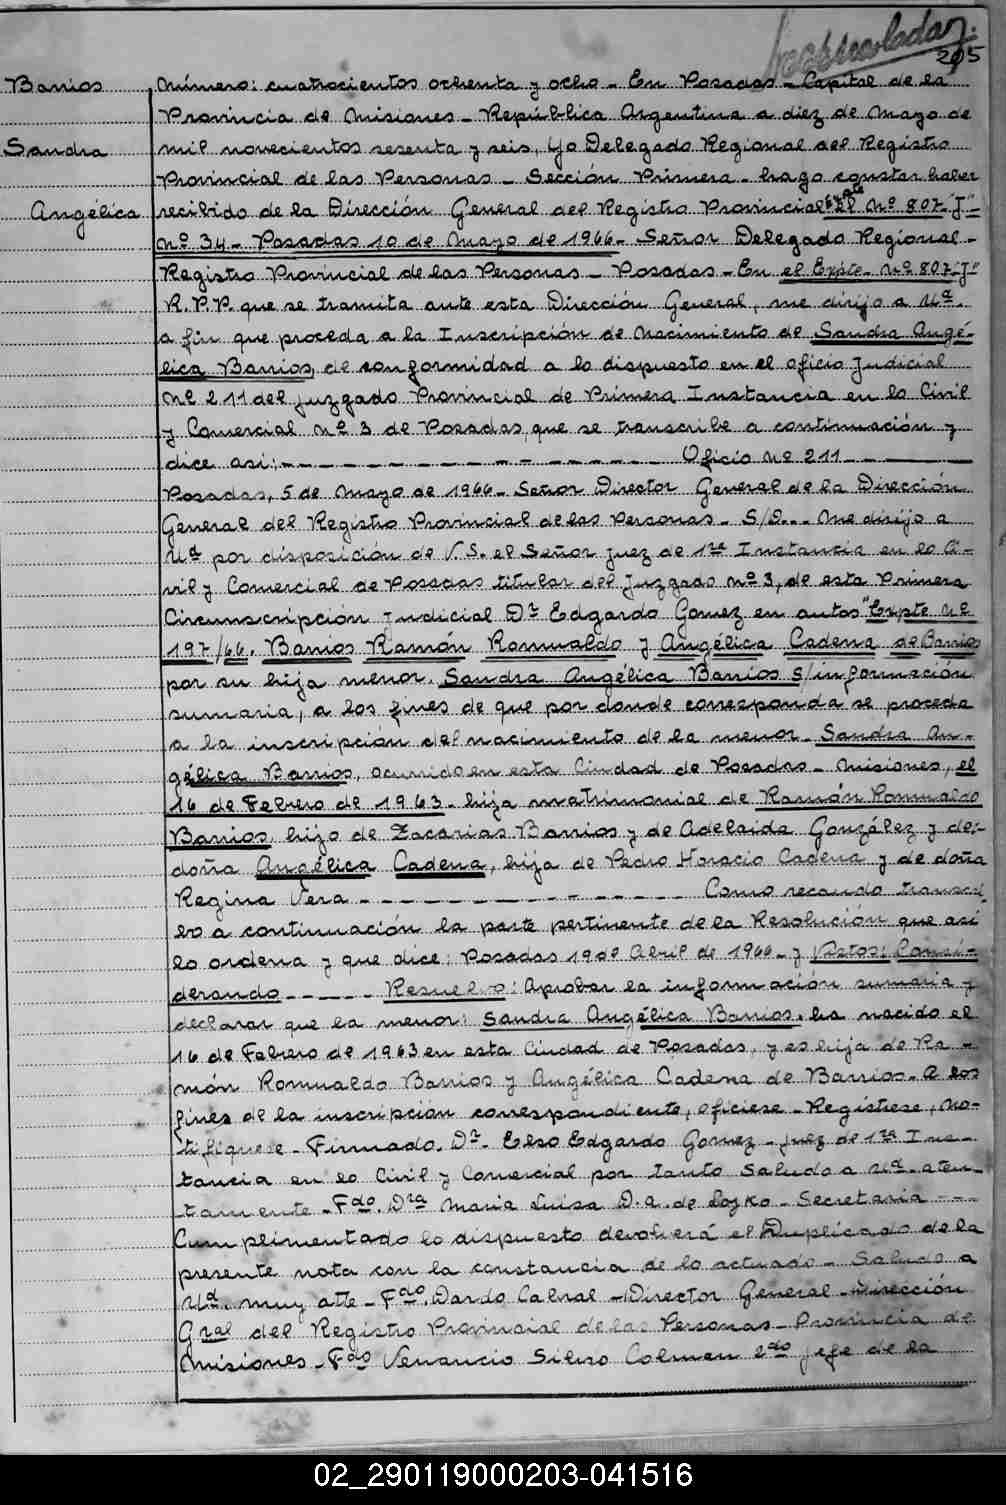 205
Barrios
Sandra
Angélica
Número: cuatrocientos ochenta y ocho - En Posadas - Capital de la
Provincia de Misiones - República Argentina a diez de Mayo de
mil novecientos sesenta y seis, Yo Delegado Regional del Registro
Provincial de las Personas - Sección Primera - hago constar haber
recibido de la Dirección General del Registro Provincial Expte Nº 807-"J"-
Nº 34 - Posadas 10 de Mayo de 1966 - Señor Delegado Regional -
Registro Provincial de las Personas - Posadas - En el Expte - Nº 807-"J"
R.P.P. que se tramita ante esta Dirección General, me dirijo a Ud.
a fin que proceda a la Inscripción de Nacimiento de Sandra Angé-
lica Barrios, de conformidad a lo dispuesto en el oficio Judicial
Nº 211 del Juzgado Provincial de Primera Instancia en lo Civil
y Comercial Nº 3 de Posadas, que se transcribe a continuación y
dice así: - - - - - - - - - - - - Oficio Nº 211 - - - -
Posadas, 5 de Mayo de 1966 - Señor Director General de la Dirección
General del Registro Provincial de las Personas - S/D - - Me dirijo a
Ud por disposición de V.S. el Señor Juez de 1ra Instancia en lo Ci-
vil y Comercial de Posadas titular del Juzgado Nº 3, de esta Primera
Circunscripción Judicial Dr Edgardo Gomez en autos "Expte Nº
197/66. Barrios Ramón Romualdo y Angélica Cadena de Barrios
por su hija menor. Sandra Angélica Barrios S/información
sumaria, a los fines de que por donde corresponda se proceda
a la inscripción del nacimiento de la menor - Sandra An-
gélica Barrios, ocurrido en esta Ciudad de Posadas - Misiones, el
16 de Febrero de 1963 - hija matrimonial de Ramón Romualdo
Barrios, hijo de Zacarias Barrios y de Adelaida González y de:
doña Angélica Cadena, hija de Pedro Horacio Cadena y de doña
Regina Vera - - - - - - - - - - - - Como recaudo transcri-
bo a continuación la parte pertinente de la Resolución que así
lo ordena y que dice: Posadas 19 de Abril de 1966 - y Vistos: Consi-
derando - - - - - Resuelvo: Aprobar la información sumaria y
declarar que la menor: Sandra Angélica Barrios, ha nacido el
16 de Febrero de 1963 en esta Ciudad de Posadas, y es hija de Ra-
món Romualdo Barrios y Angélica Cadena de Barrios. A los
fines de la inscripción correspondiente, oficiese - Regístrese, No-
tifiquese - Firmado. Dr - Elso Edgardo Gomez - Juez de 1ra Ins-
tancia en lo Civil y Comercial por tanto saludo a Ud. aten-
tamente - Fdo. Dra Maria Luisa D. a. de Lojko - Secretaria - - -
Cumplimentado lo dispuesto devolverá el Duplicado de la
presente nota con la constancia de lo actuado - Saludo a
Ud. muy atte - Fdo. Dardo Cabral - Director General - Dirección
Gral del Registro Provincial de las Personas - Provincia de
Misiones - Fdo Venancio Silvso Colman 2do Jefe de la
02_290119000203-041516